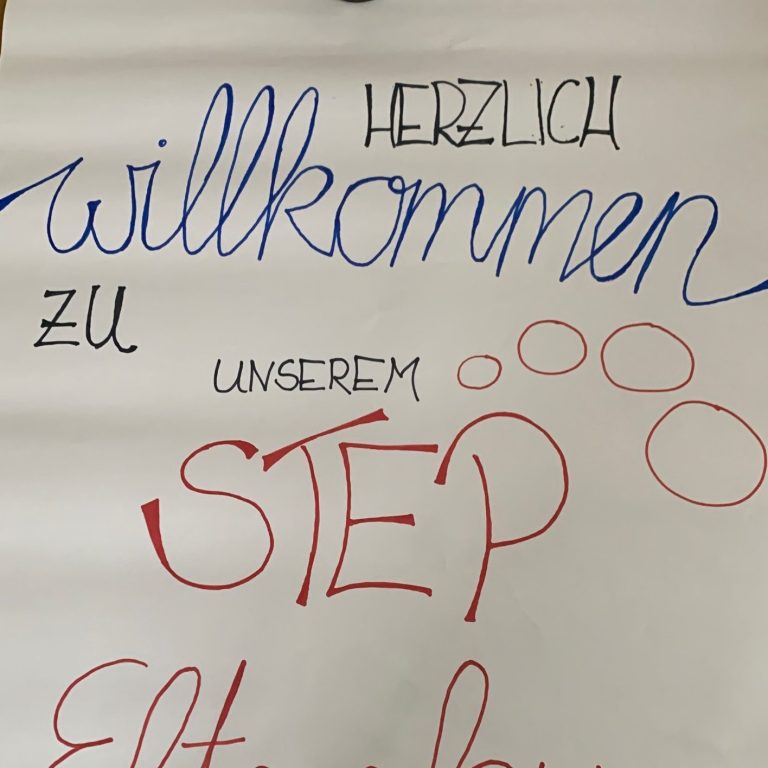 HERZLICH
willkommen
ZU
UNSEREM
STEP